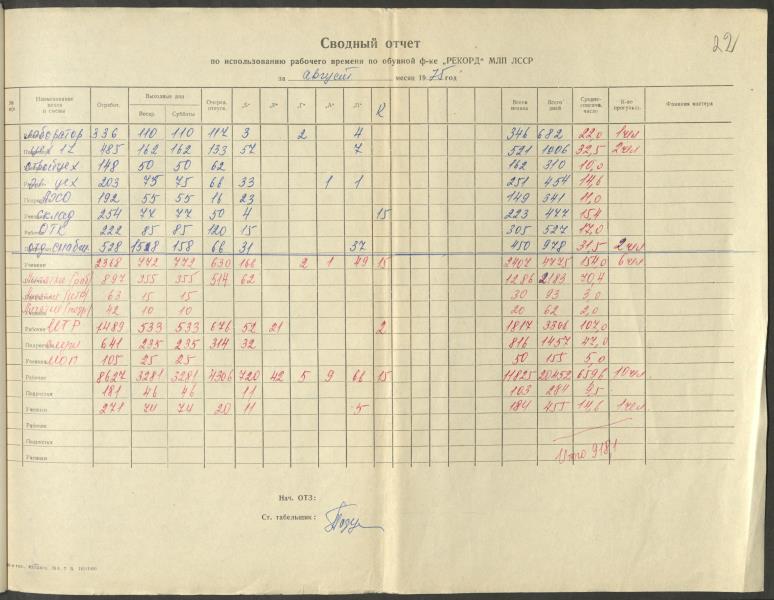 22
Сводный отчет
по использованию рабочего времени по обувной ф-ке „РЕКОРД“ МЛП ЛССР
за август месяц 1975 год
Наименование цехов и смены Отработ. Выходные дни Воскр. Субботы Очеред. отпуск. К Всего неявка Всего дней Средне-списочн. число К-во прогульщ. Фамилия мастера
лаборатор 336 110 110 117 3 2 4 346 682 22,0 1 чел
485 162 162 133 57 7 521 1006 32,5 2 чел
стройцех 148 50 50 62 162 310 10,0
цех 203 75 75 68 33 1 1 251 454 14,6
192 55 55 16 23 149 341 11,0
склад 254 77 77 50 4 15 223 477 15,4
ОТК 222 85 85 120 15 305 527 17,0
отд. снабж. 528 158 158 66 31 37 450 978 31,5 2 чел
Ученики 2368 772 772 630 166 2 1 49 15 2407 4775 154,0 6 чел
897 355 355 514 62 1286 2183 70,4
63 15 15 30 93 3,0
42 10 10 20 62 2,0
Рабочие ИТР 1489 533 533 676 52 21 2 1817 3306 107,0
641 235 235 314 32 816 1457 47,0
Ученики МОП 105 25 25 50 155 5,0
Рабочие 8627 3281 3281 4306 720 42 5 9 66 15 11825 20452 659,6 10 чел
Подростки 181 46 46 11 103 284 9,5
Ученики 271 74 74 20 11 5 184 455 14,6 1 чел
Рабочие
Подростки
Ученики
Итого 918,1
Нач. ОТЗ:
Ст. табельщик: